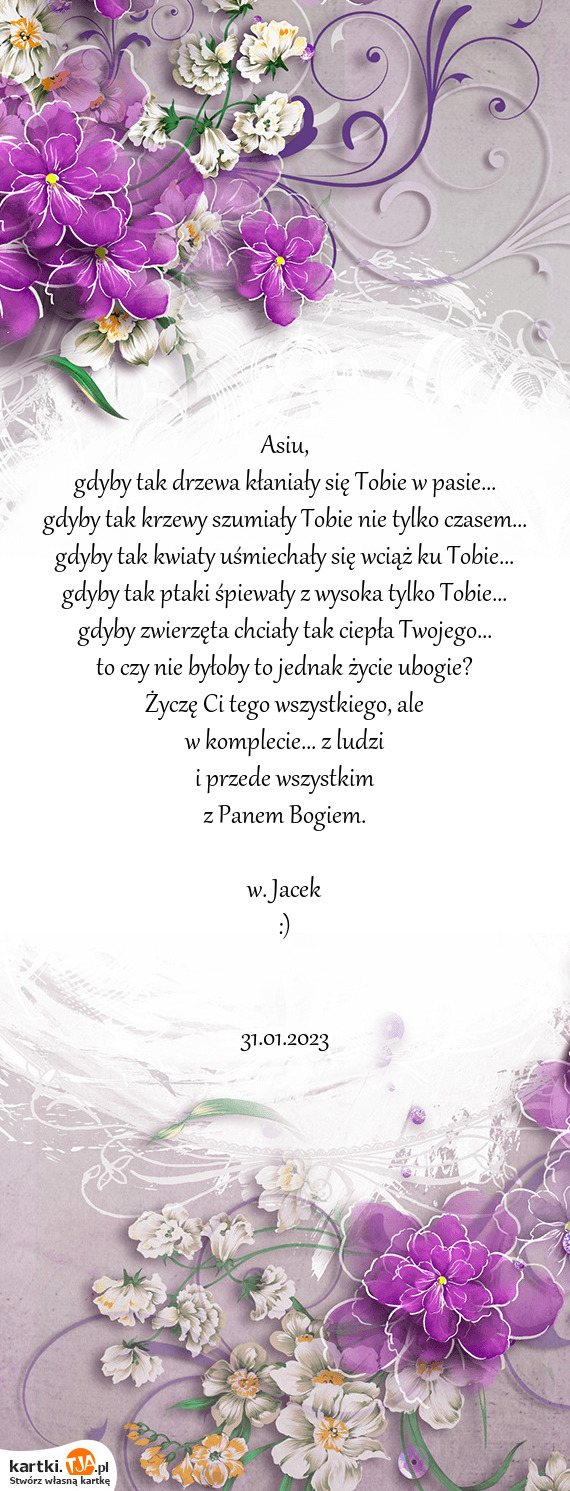 Asiu,
gdyby tak drzewa kłaniały się Tobie w pasie...
gdyby tak krzewy szumiały Tobie nie tylko czasem...
gdyby tak kwiaty uśmiechały się wciąż ku Tobie...
gdyby tak ptaki śpiewały z wysoka tylko Tobie...
gdyby zwierzęta chciały tak ciepła Twojego...
to czy nie byłoby to jednak życie ubogie?
Życzę Ci tego wszystkiego, ale
w komplecie... z ludzi
i przede wszystkim
z Panem Bogiem.
w. Jacek
:)
31.01.2023
kartki.TJA.pl
Stwórz własną kartkę